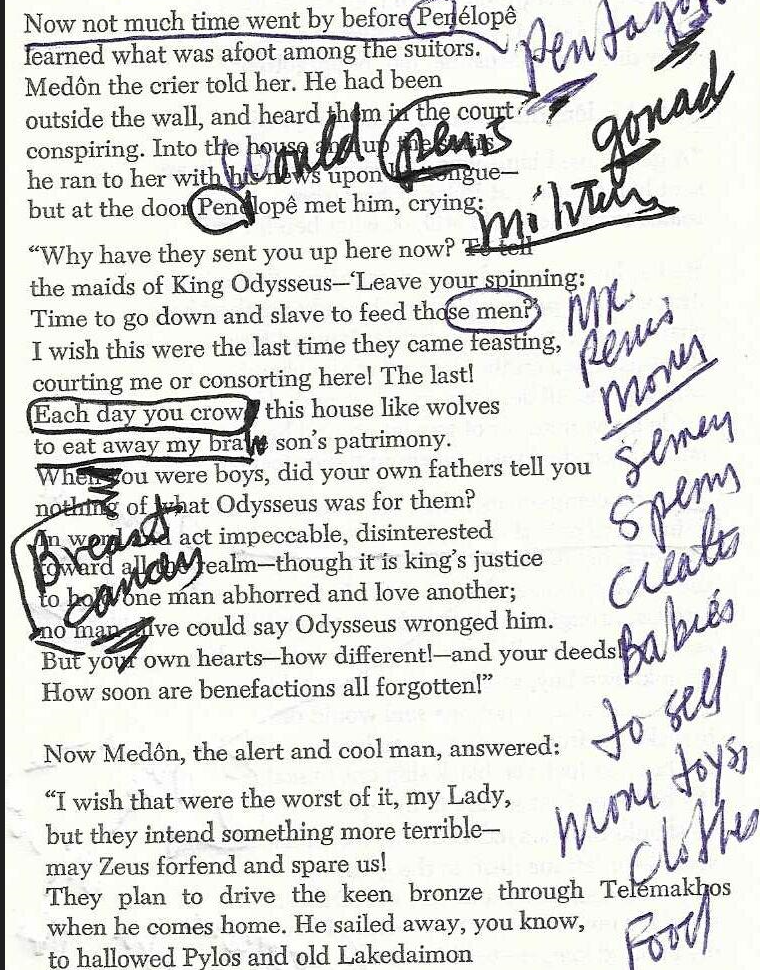 Now not much time went by before Penélopê
Pentagon
learned what was afoot among the suitors.
Medôn the crier told her. He had been
outside the wall, and heard them in the court
gonad
Would penis
conspiring. Into the house and up the stairs
he ran to her with his news upon tongue—
but at the door Penélopê met him, crying:
"Why have they sent you up here now? To tell
the maids of King Odysseus—'Leave your spinning:
Time to go down and slave to feed those men?'
Mr.
Penis
I wish this were the last time they came feasting,
courting me or consorting here! The last!
Money
Each day you crowd this house like wolves
to eat away my brave son's patrimony.
semen
When you were boys, did your own fathers tell you
nothing of what Odysseus was for them?
Sperms
In word and act impeccable, disinterested
Breast
candy
toward all the realm—though it is king's justice
creates
to hold one man abhorred and love another;
no man alive could say Odysseus wronged him.
Babies
But your own hearts—how different!—and your deeds!
How soon are benefactions all forgotten!"
to sell
Now Medôn, the alert and cool man, answered:
more toys
"I wish that were the worst of it, my Lady,
but they intend something more terrible—
clothes
may Zeus forfend and spare us!
They plan to drive the keen bronze through Telémakhos
when he comes home. He sailed away, you know,
Food
to hallowed Pylos and old Lakedaimon